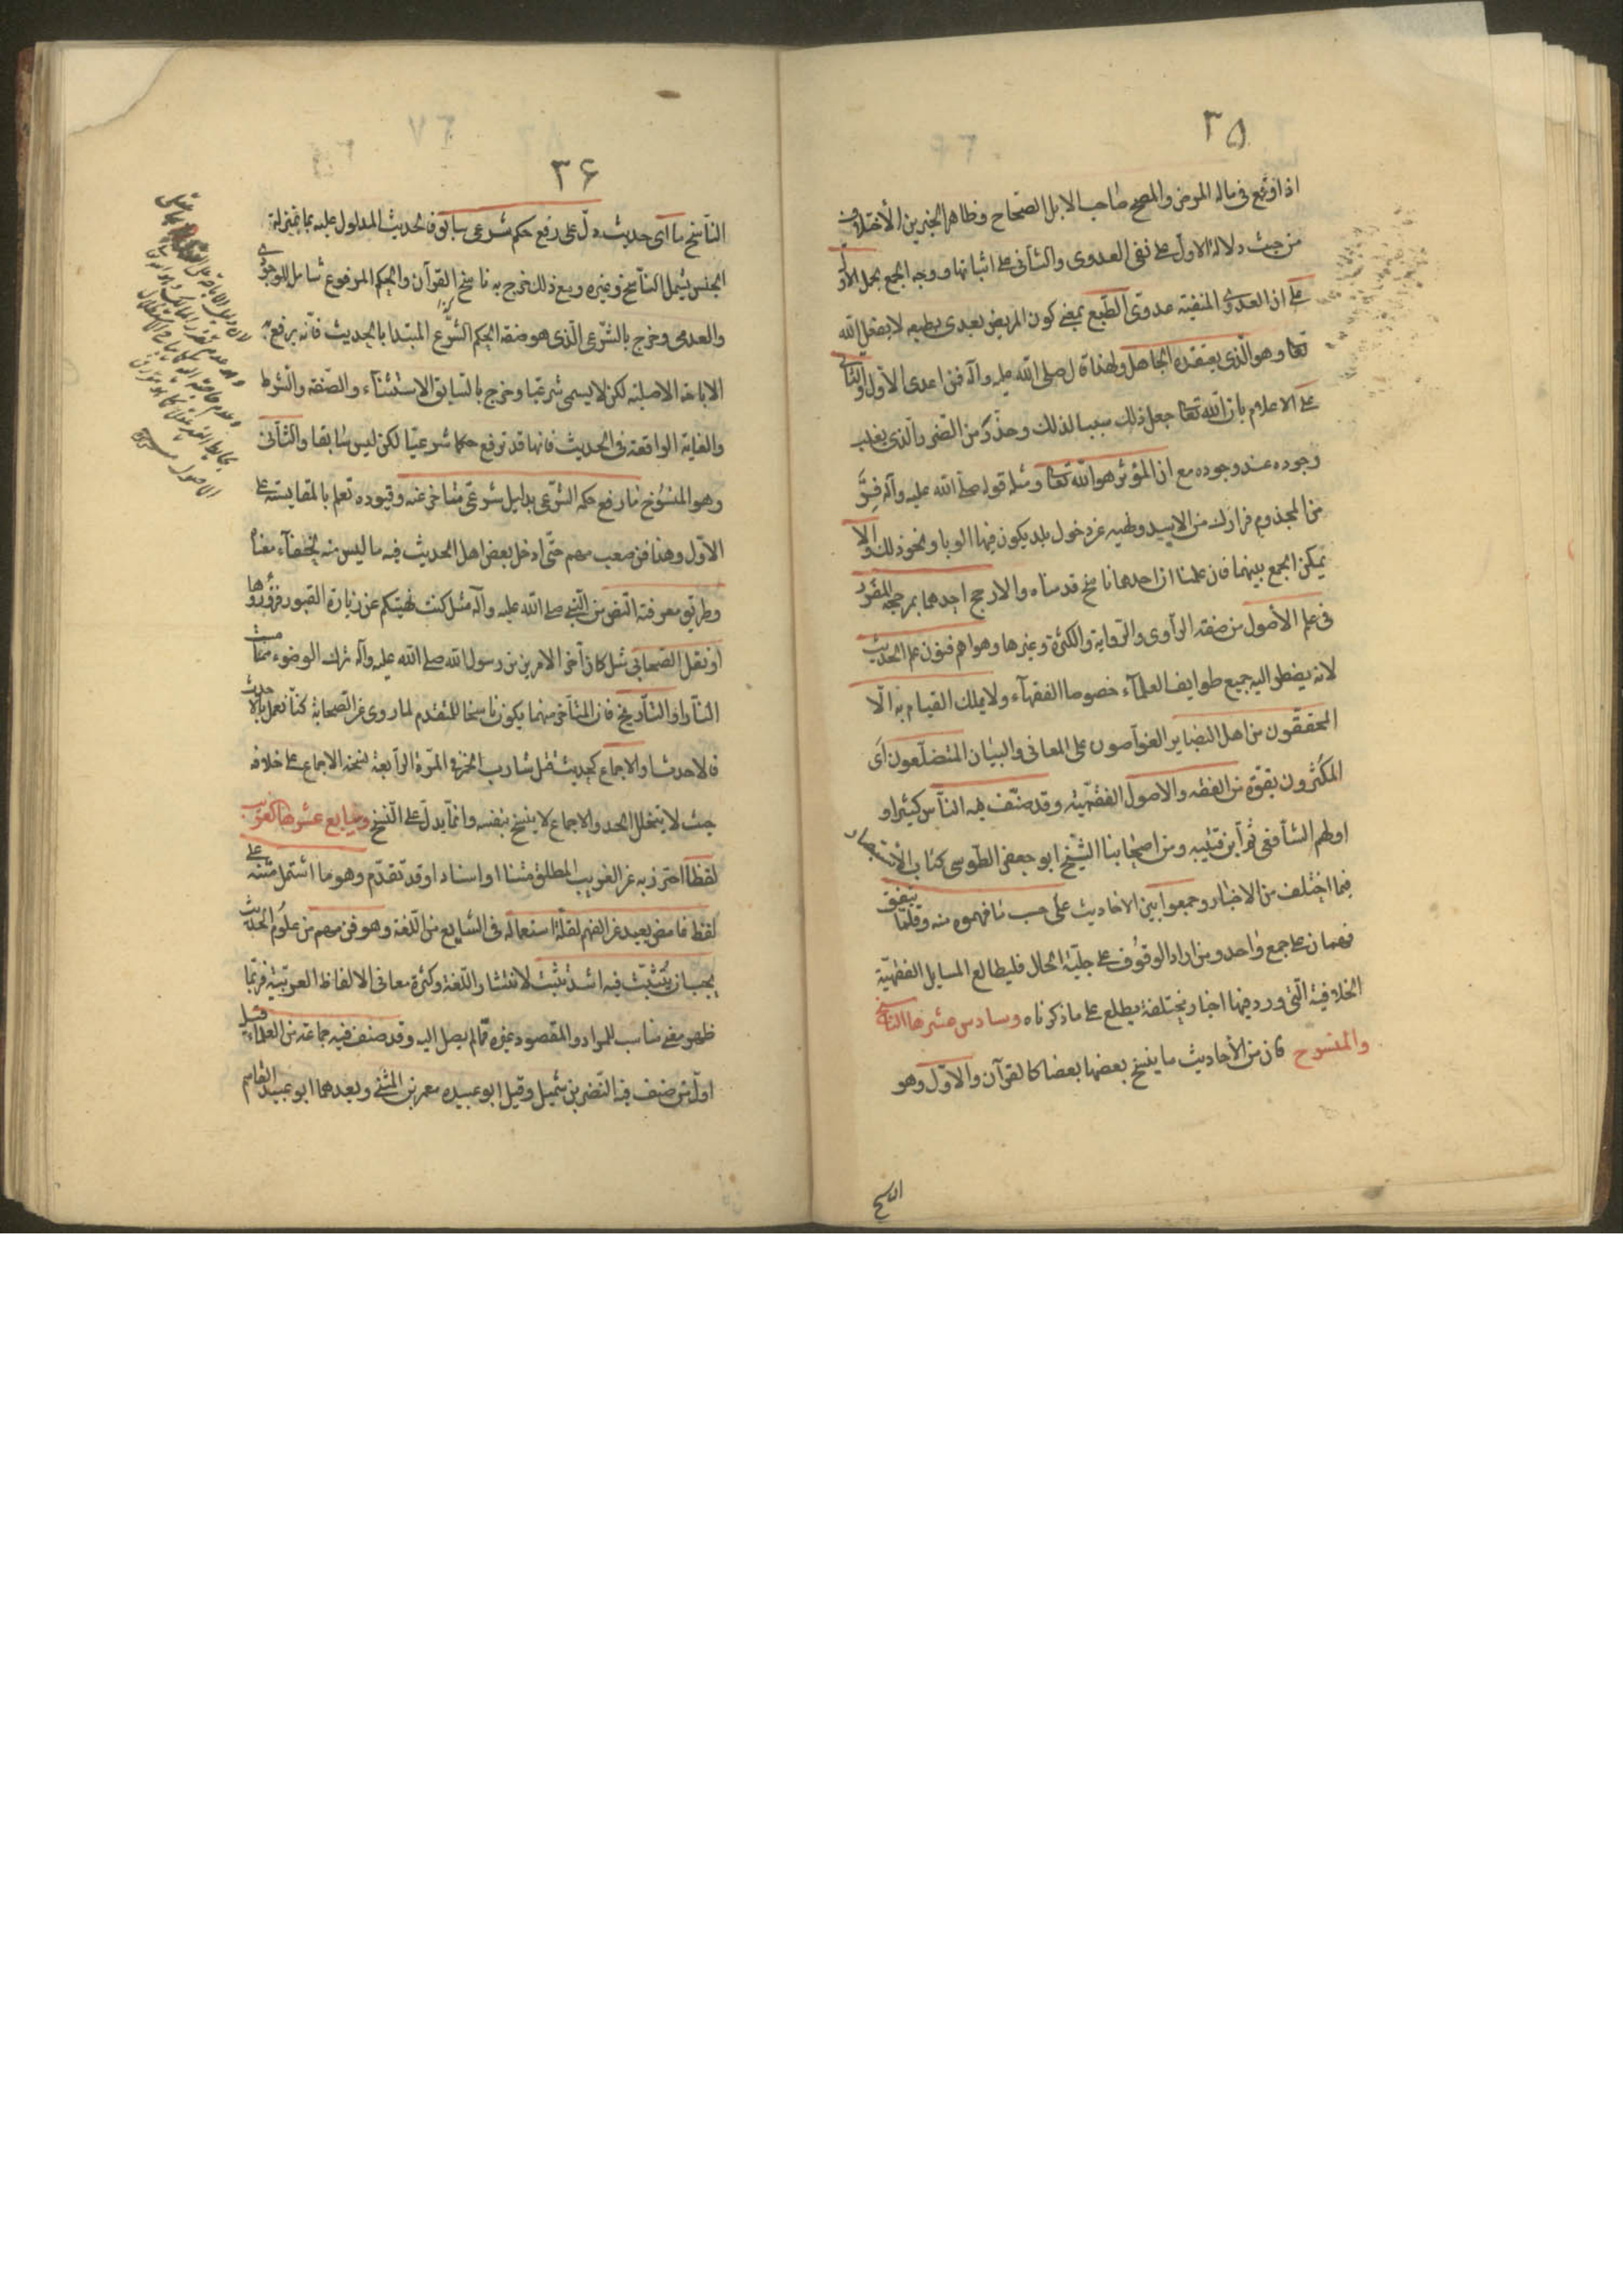 ٣٥
اذا وقع فى ماله المرض والمصح صاحب الابل الصحاح وظاهر الخبرين الأختلاف
من حيث دلالة الاول على نفى العدوى والثانى على اثباتها ووجه الجمع بحمل الأول
على ان العدوى المنفية عدوى الطبع بمعنى كون المريض يعدى بطبعه لا بفعل الله
تعا وهو الذى يعتقده الجاهل ولهذا قال صلى الله عليه واله فمن اعدى الأول والثانى
على الاعلام بان الله تعا جعل ذلك سببا لذلك وحذر من الضرر الذى يغلب
وجوده عند وجوده مع ان المؤثر هو الله تعا ومثله قوله صلى الله عليه وآله فِرَّ
من المجذوم فرارك من الاسد ونهيه عن دخول بلد يكون فيها الوبا ونحو ذلك والا
يمكن الجمع بينهما فان علمنا ان احدهما ناسخ قدمناه والا رجح احدهما بمرجحه المقرر
فى علم الأصول من صفة الراوى والرواية والكثرة وغيرها وهو اهم فنون علم الحديث
لانه يضطر اليه جميع طوايف العلمآء خصوصا الفقهآء ولا يملك القيام به الّا
المحققون من اهل البصاير الغوّاصون على المعانى والبيان المتضلّعون اى
المكثرون بقوّة من الفقه والاصول الفقهيّة وقد صنّف فيه النّاس كثيرا و
اولهم الشافعى ثم ابن قتيبه ومن اصحابنا الشيخ ابو جعفر الطوسى كتاب الاستبصار
فيما اختلف من الاخبار وجمعوا بين الاحاديث على حسب ما فهموه منه وقلّما يتفق
فهمان على جمع واحد ومن اراد الوقوف على جليّة الحال فليطالع المسايل الفقهيّة
الخلافيّة الّتى ورد فيها اخبار مختلفة يطلع على ما ذكرناه وسادس عشرها الناسخ
والمنسوخ فان من الأحاديث ما ينسخ بعضها بعضا كالقرآن والاوّل وهو
الناسخ
٣۶
النّاسخ ما اى حديث دلّ على رفع حكم شرعى سابق فالحديث المدلول عليه بما بمنزلة
الجنس يشمل النّاسخ وغيره ومع ذلك خرج به ناسخ القرآن والحكم المرفوع شامل للوجودى
والعدمى وخرج بالشرعى الّذى هو صفة الحكم الشرع المبتدا بالحديث فانّه يرفع به
الاباحة الاصلية لكن لا يسمى شرعيا وخرج بالسابق الاستثنآء والصّفة والشرط
والغاية الواقعة فى الحديث فانها قد ترفع حكما شرعيّا لكن ليس سابقا والثانى
وهو المنسوخ ما رفع حكمه الشرعى بدليل شرعى متاخر عنه وقيوده تعلم بالمقايسة على
الاوّل وهذا فن صعب مهم حتّى ادخل بعض اهل الحديث فيه ما ليس منه لخفآء معناه
وطريق معرفته النّص من النّبى صلى الله عليه وآله مثل كنت نهيتكم عن زيارة القبور فزوروها
او نقل الصحابى مثل كان آخر الامرين من رسول الله صلى الله عليه وآله ترك الوضوء مما مست
النّار او التّاريخ فان المتأخر منهما يكون ناسخا للمتقدم لما روى عن الصّحابة كنّا نعمل بالاحدث
فالاحدث او الاجماع كحديث قتل شارب الخمر فى المرّة الرابعة نسخه الاجماع على خلافه
حيث لا يتخلل الحد والاجماع لا ينسخ بنفسه وانّما يدلّ على النّسخ وسابع عشرها الغريب
لفظا احترز به عن الغريب المطلق متنا او اسنادا وقد تقدّم وهو ما اشتمل متنه على
لفظ غامض بعيد عن الفهم لقلّة استعماله فى الشايع من اللّغة وهو فن مهم من علوم الحديث
يجب ان يتثبّت فيه اشد تثبّت لانتشار اللّغة وكثرة معانى الالفاظ العربيّة فربّما
ظهر معنى مناسب للمراد والمقصود غيره مما لم يصل اليه وقد صنف فيه جماعة من العلماء قيل
اوّل من صنف فيه النّضر بن شميل وقيل ابو عبيده معمر بن المثنى وبعدهما ابو عبيد القاسم